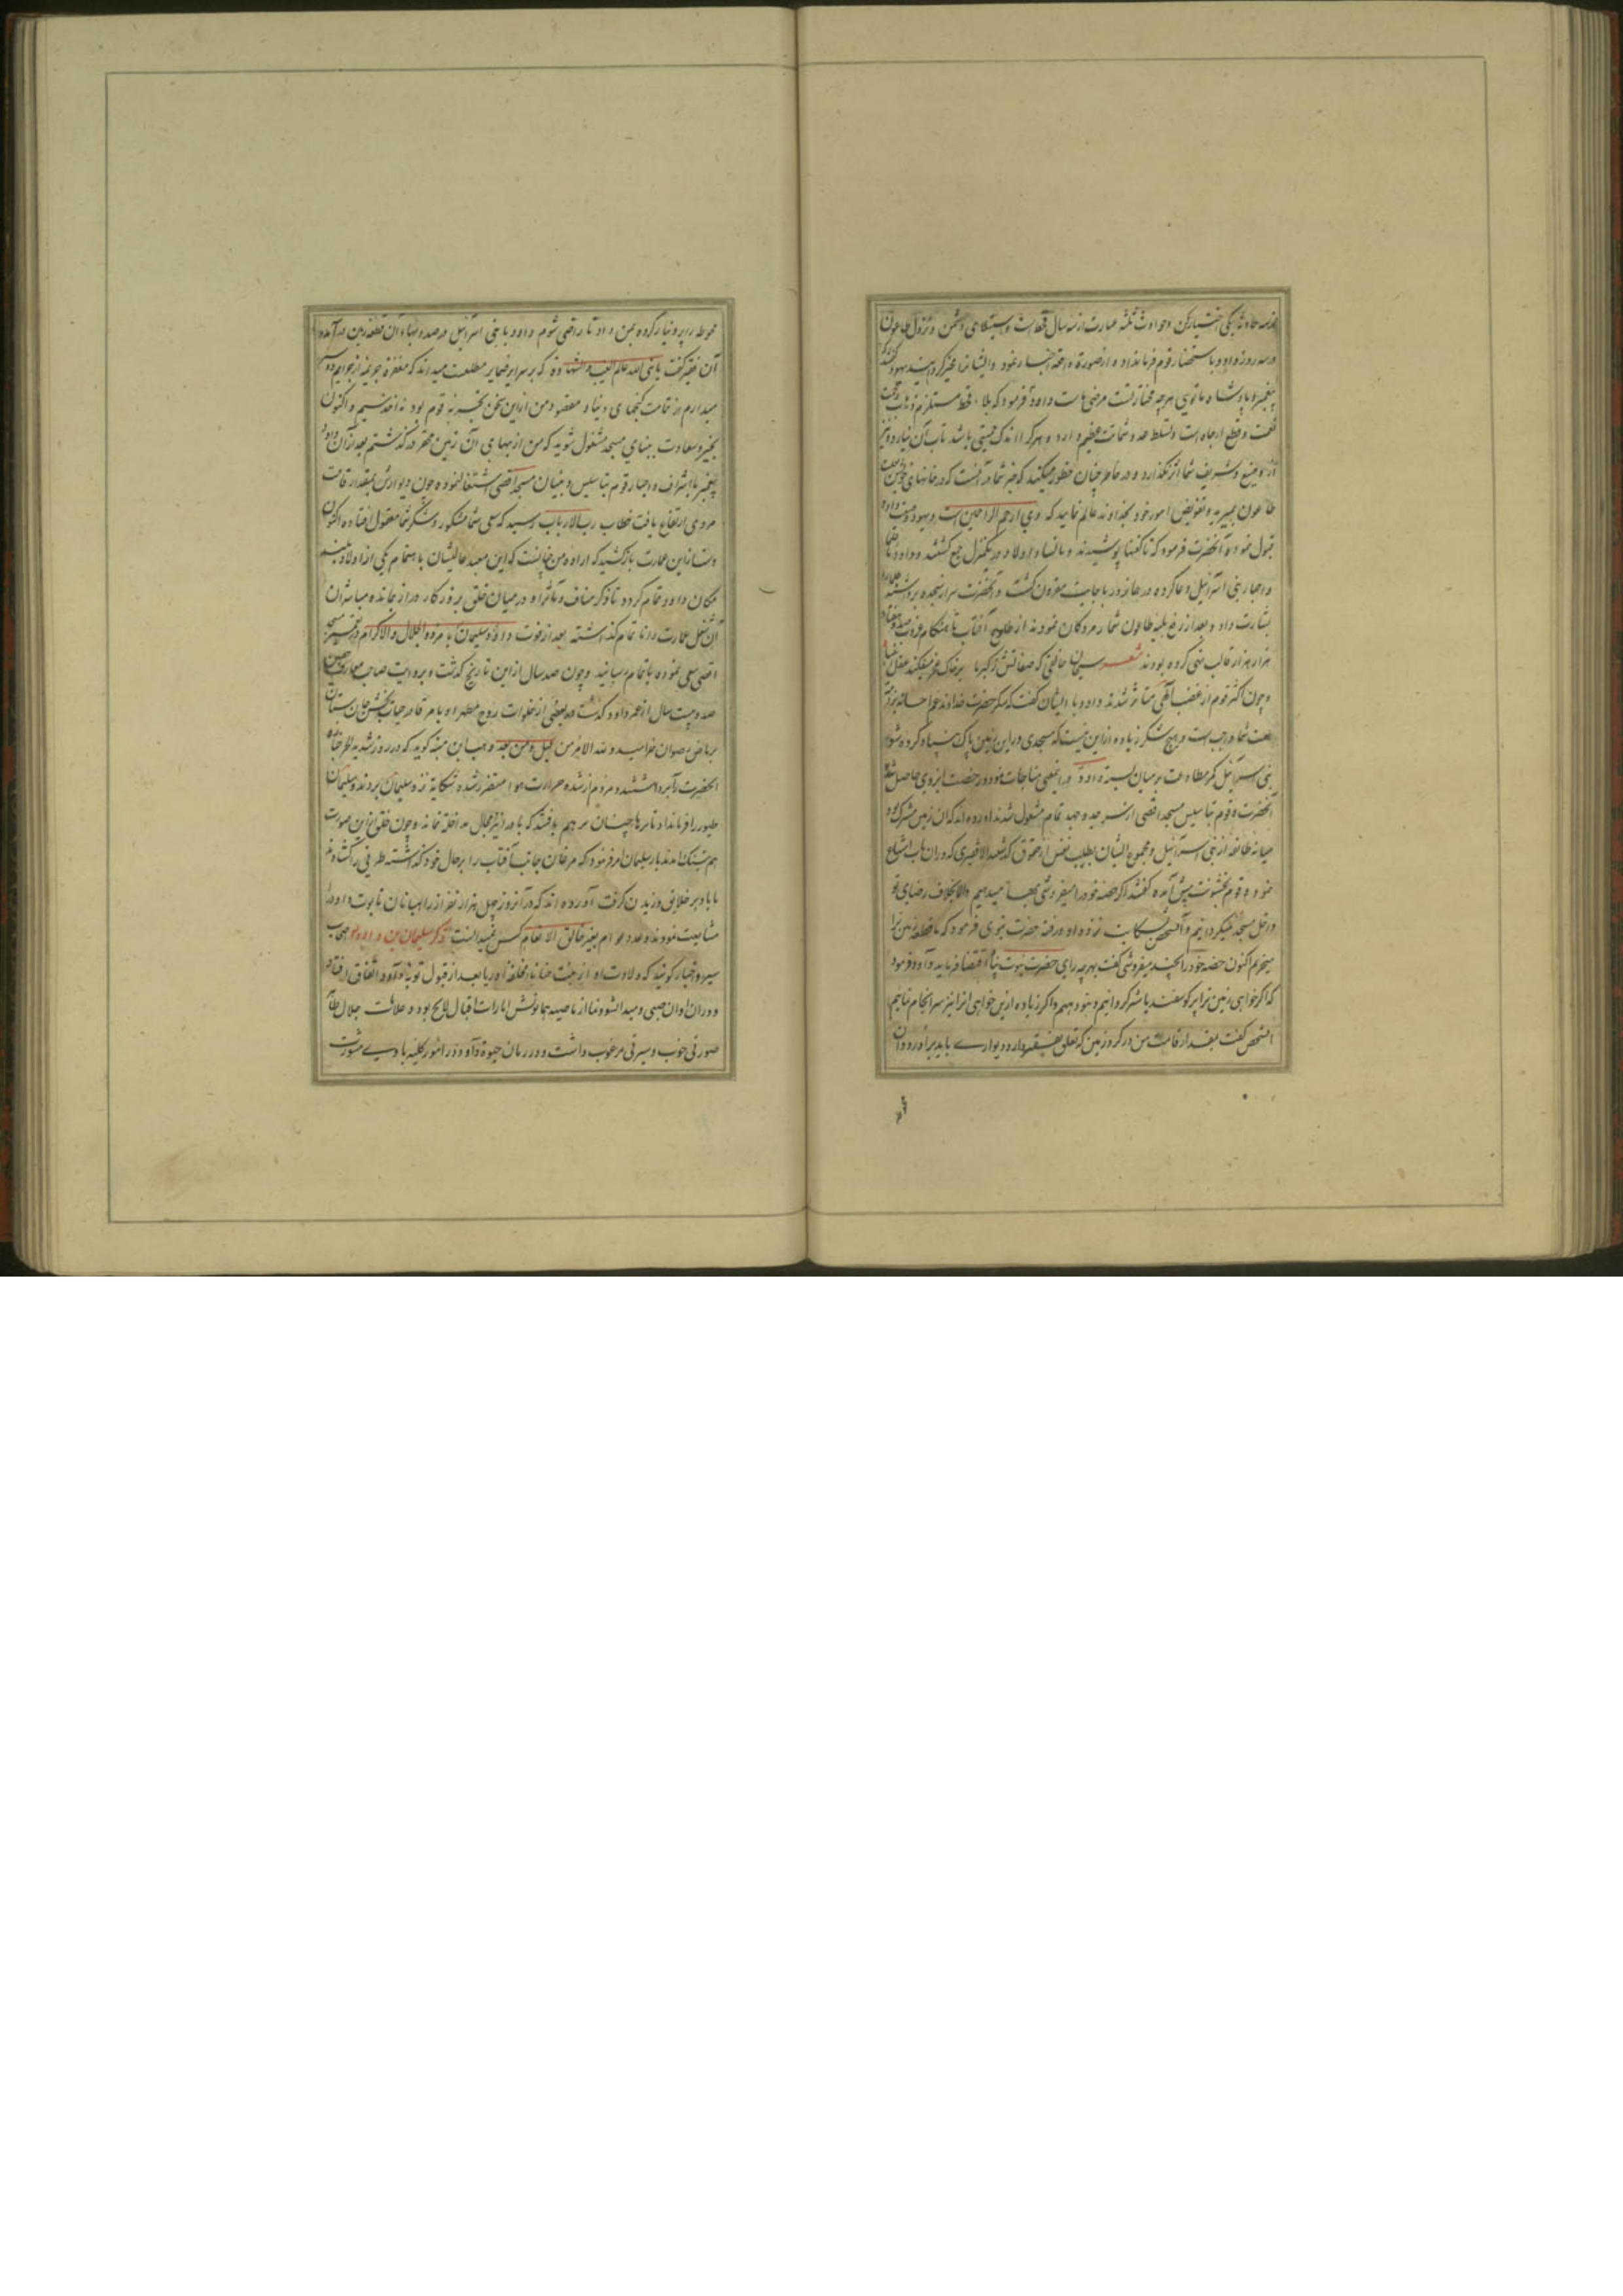 حادثه یکی اختیار کن و حوادث ثلثه عبارت از سه سال قحط است و استیلای دشمن و نزول طاعون
در سه روز داود باستحضار قوم فرمانداد و از صورة واقعه اخبار نمود و ایشانرا مخیر گردانید یهود گفتند
پیغمبر و پادشاه ما تویی هر چه مختار تست مرضی ماست داود فرمود که بلاء قحط مستلزم
و قطع ارحام است و تسلط عدو شماتت عظیم دارد و هر که را اندک حمیتی باشد تاب آن نیارد و نیز
از وضیع و شریف شما اثر نگذارد و در خاطر چنان خطور میکند که خیر شما در آنست که در خانهای خویش
طاعون بمیرید و تفویض امور خود بخداوند عالم نمایید که وی ارحم الراحمین است و یهود
قبول نموده آنحضرت فرمود که تا کفنها پوشیدند و با نسا و اولاد در یکمنزل جمع گشتند و داود
و احبار بنی اسرائیل دعا کرده در همانروز باجابت مقرون گشت و آنحضرت سر از سجده برداشته
بشارت داد و بعد از رفع بلیه طاعون شمار مردگان نمودند از طلوع آفتاب تا هنگام غروب
هزار هزار قالب تهی کرده بودند شعر سبحان خالقی که صفاتش ز کبریا بر خاک عجز میفکند عقل انبیا
و چون اکثر قوم از غضب الهی متأثر شدند داود با ایشان گفت که شکر حضرت خداوند عم احسانه بر
شما واجبست و هیچ شکر زیاده از این نیست که مسجدی در این زمین پاک بنیاد کرده شود
بنی اسرائیل کمر مطاوعت بر میان بسته داود در اثنای مناجات نمود و رخصت ایزدی حاصل شد
آنحضرت و قوم بتاسیس مسجد اقصی از سر جد و جهد تمام مشغول شدند آورده اند که آن زمین مشترک بود
میانه طائفه از بنی اسرائیل و مجموع ایشان بطیب نفس از حقوق گذشتند الا فقیری که در آن باب امتناع
نمود و قوم بخشونت پیش آمده گفتند اگر حصه خود را میفروشی بها میدهیم و الا بخلاف رضای تو
داخل مسجد میگردانیم و آنشخص شکایت نزد داود رفته حضرت نبوی فرمود که ما قطعه زمین ترا
میخریم اکنون حصه خود را بچند میفروشی گفت بهر چه رای حضرت نبوت پناه اقتضا فرماید داود فرمود
که اگر خواهی زمین ترا پر گوسفند یا شتر گردانیم و بتو دهیم و اگر زیاده ازین خواهی آنرا نیز سرانجام نماییم
آنشخص گفت بمقدار قامت من در گرد زمین که تعلق بفقیر دارد دیواری باید برآورد و آن
محوطه را پر دینار کرده بمن داد تا راضی شوم داود با بنی اسرائیل در صدد بهاء آن قطعه زمین در آمده
آن فقیر گفت یا نبی الله عالم الغیب و الشهادة که بر سرایر ضمایر مطلعست میداند که مغفرة جریمه از جرایم
میدارم از تمامت گنجهای دنیا و مقصود من از این سخن تجربه قوم بود نه اخذ سیم و اکنون
بخیر و سعادت ببنای مسجد مشغول شوید که من از بهای آن زمین محقر درگذشتم بعد از آن داود
پیغمبر با اشراف و احبار قوم بتاسیس و بنیان مسجد اقصی اشتغال نموده چون دیوارش بمقدار قامت
مردی ارتفاع یافت خطاب رب الارباب رسید که سعی شما مشکور و شکر شما مقبول افتاده اکنون
دست از این عمارت باز کشید که اراده من چنانست که این معبد عالیشان باهتمام یکی از اولاد
مکان داود تمام گردد تا ذکر مناقب و مآثر او در میان خلق بروزگار دراز بماند و مباشران
آن شغل عمارت را ناتمام گذاشته بعد از فوت داود سلیمان بامر ذو الجلال و الاکرام در تعمیر مسجد
اقصی سعی نموده باتمام رسانید و چون صد سال از این تاریخ گذشت و بروایت صاحب
صد و بیست سال از عمر داود گذشت در بعضی از خلوات روح مطهر او بامر قادر حیات بخش جان ستان
بریاض رضوان خرامید و لله الامر من قبل و من بعد وهب ابن منبه گوید که در روز شدید الحر جنازه
آنحضرت را برداشتند و مردم از شدة حرارت هوا متضرر شده شکایة نزد سلیمان بردند و سلیمان
طیور را فرمانداد تا پرها چنان در هم بافتند که باد را نیز مجال مداخلة نماند و چون خلق از این صورت
هم بتنگ آمدند باز سلیمان امر فرمود که مرغان جانب آفتاب را بر حال خود گذاشته طرفی را گشاده
تا باد بر خلایق وزیدن گرفت آورده اند که در آنروز چهل هزار نفر از رهبانان تابوت داود را
مشایعت نمودند و عدد عوام بغیر خالق الانعام کس نمیدانست ذکر سلیمان بن داود اصحاب
سیر و اخبار گویند که ولادت او از بنت حنانا مخلفه اوریا بعد از قبول توبه داود اتفاق افتاد
و در آن اوان صبی و مبدا نشو و نما از ناصیه همایونش امارات اقبال لایح بود و علامت جلال ظاهر
صورتی خوب و سیرتی مرغوب داشت و در زمان حیوة داود در امور کلیه با وی مشورت